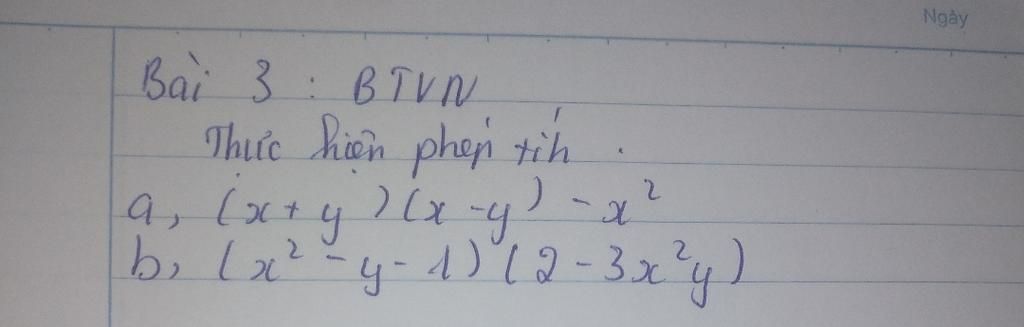 Ngày
Bài 3 : BTVN
Thực hiện phép tíh .
a, (x + y)(x - y) - x²
b, (x² - y - 1)(2 - 3x²y)